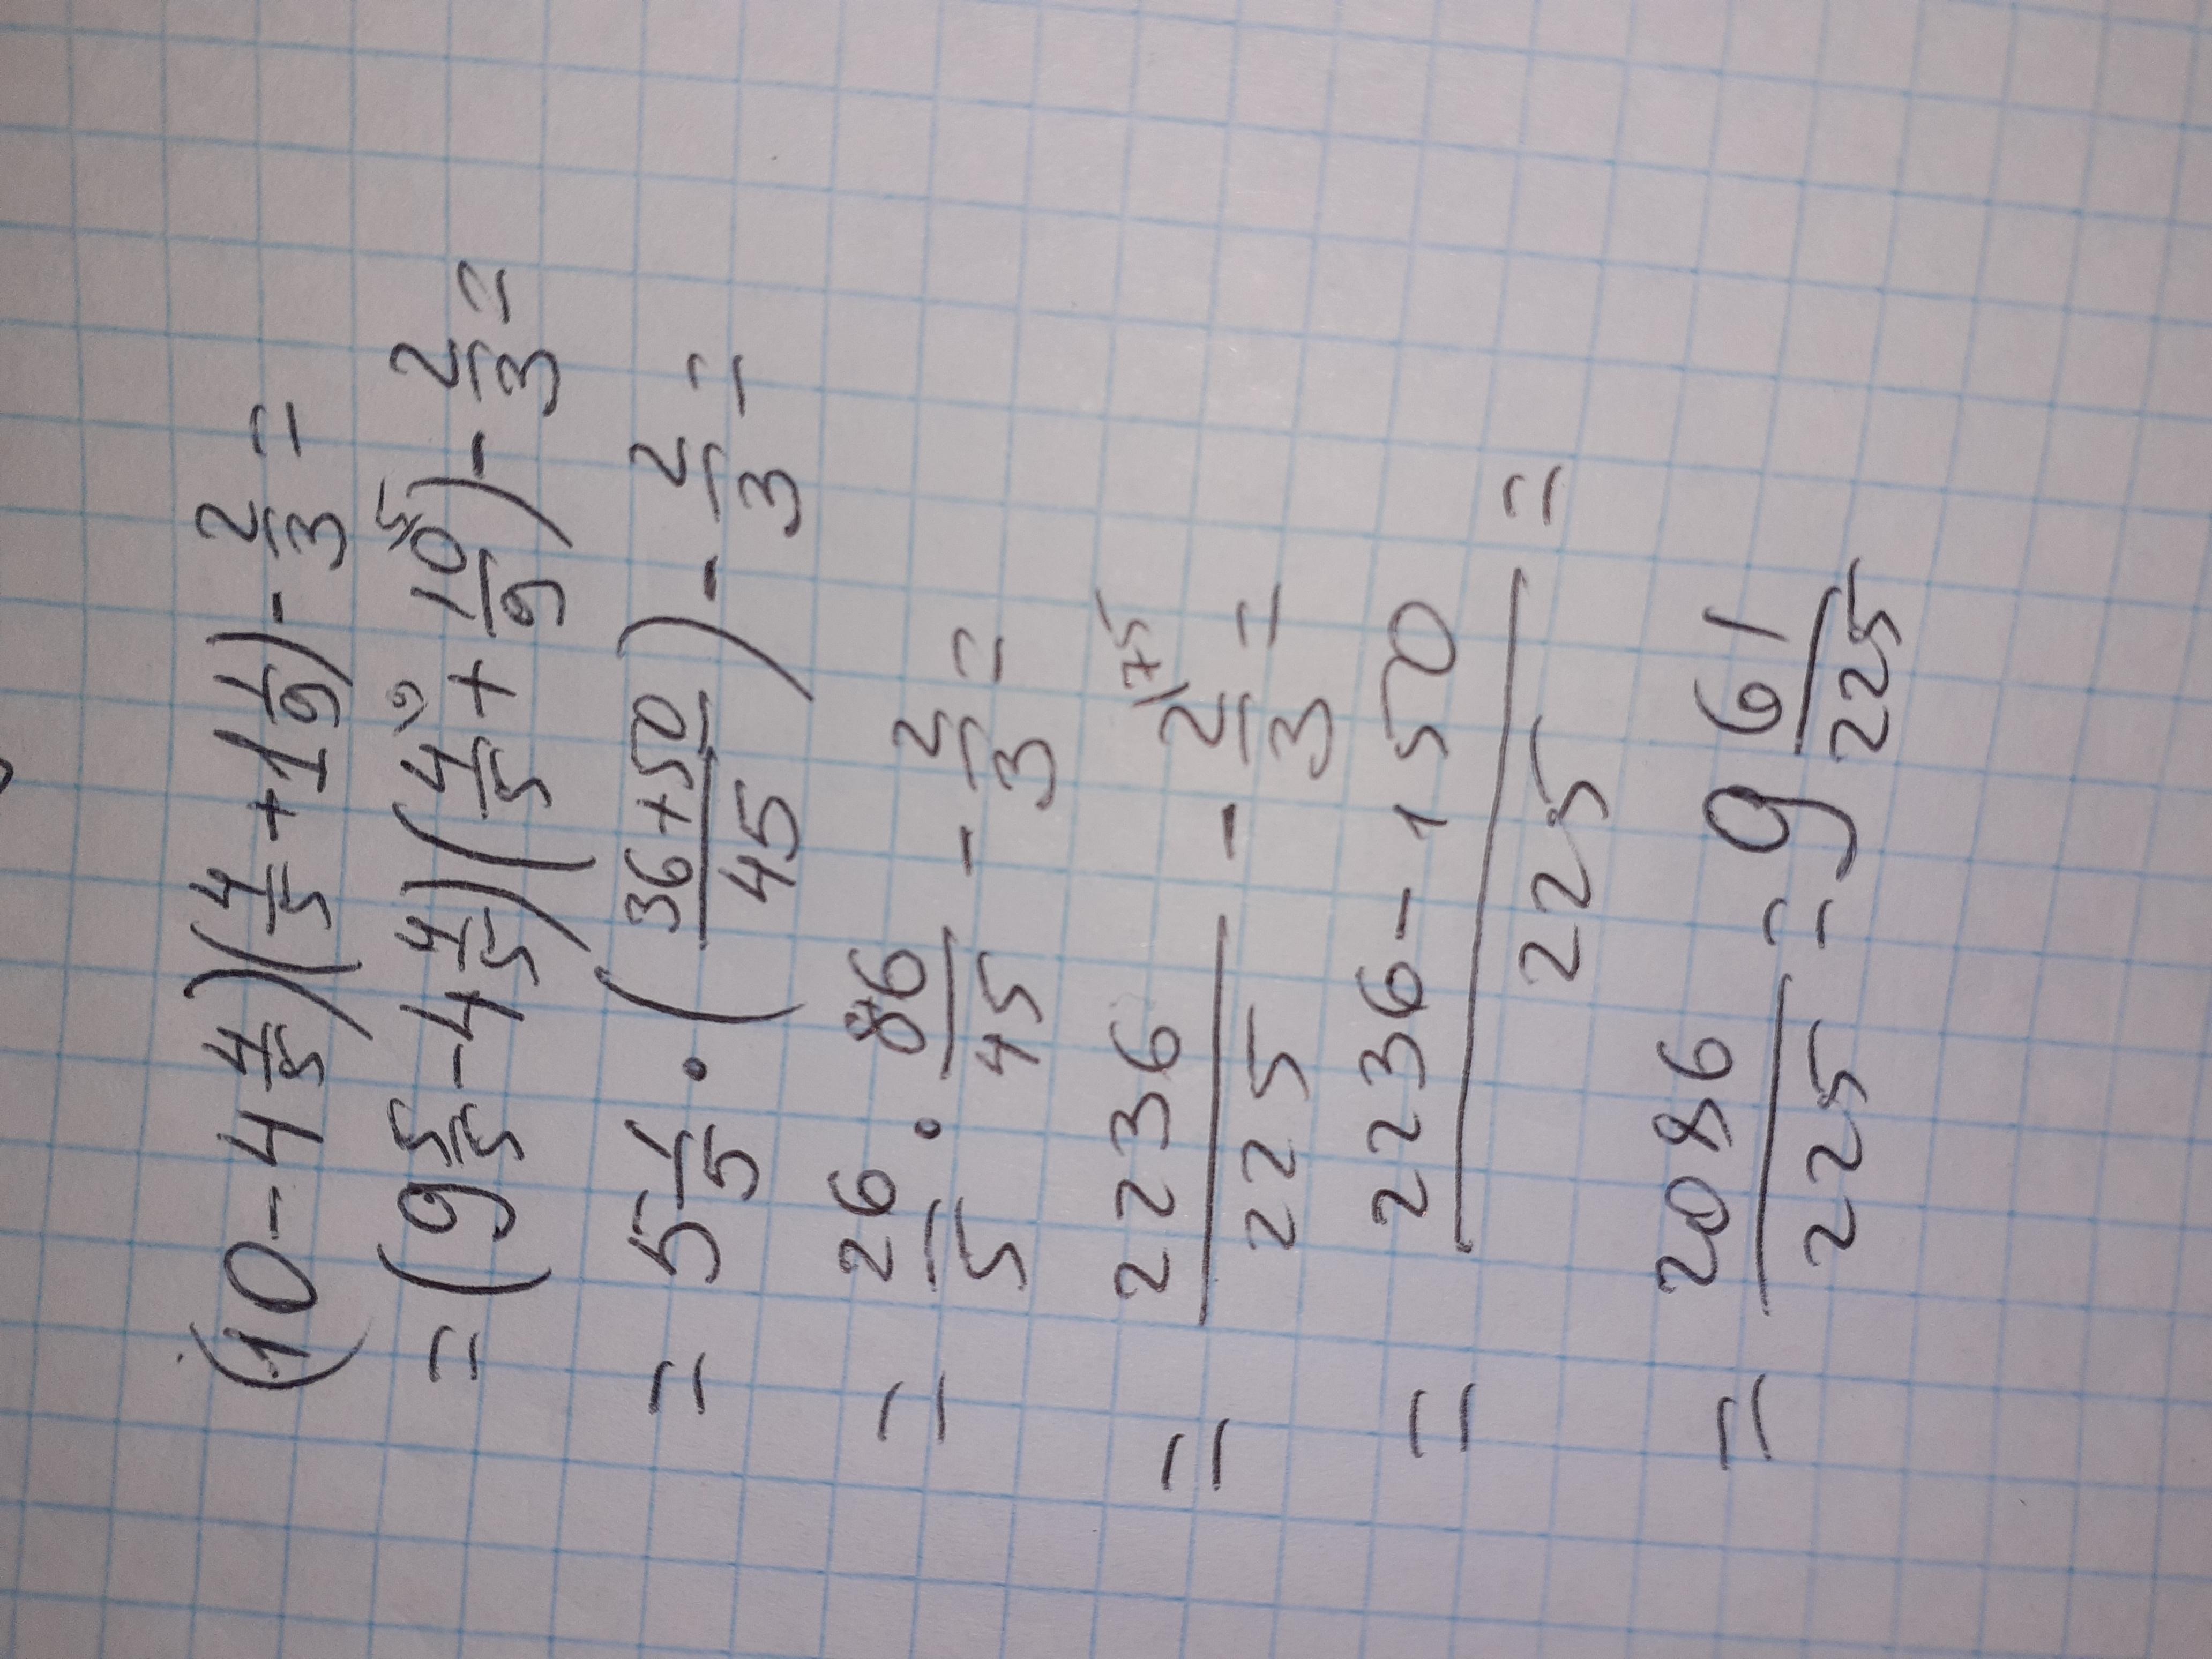 (10-4 4/5)(4/5+1 1/9)-2/3=
=(9 5/5-4 4/5)(4/5\9+10/9\5)-2/3=
=5 1/5·(36+50/45)-2/3=
=26/5·86/45-2/3=
=2236/225-2/3\75=
=2236-150/225=
=2086/225=9 61/225